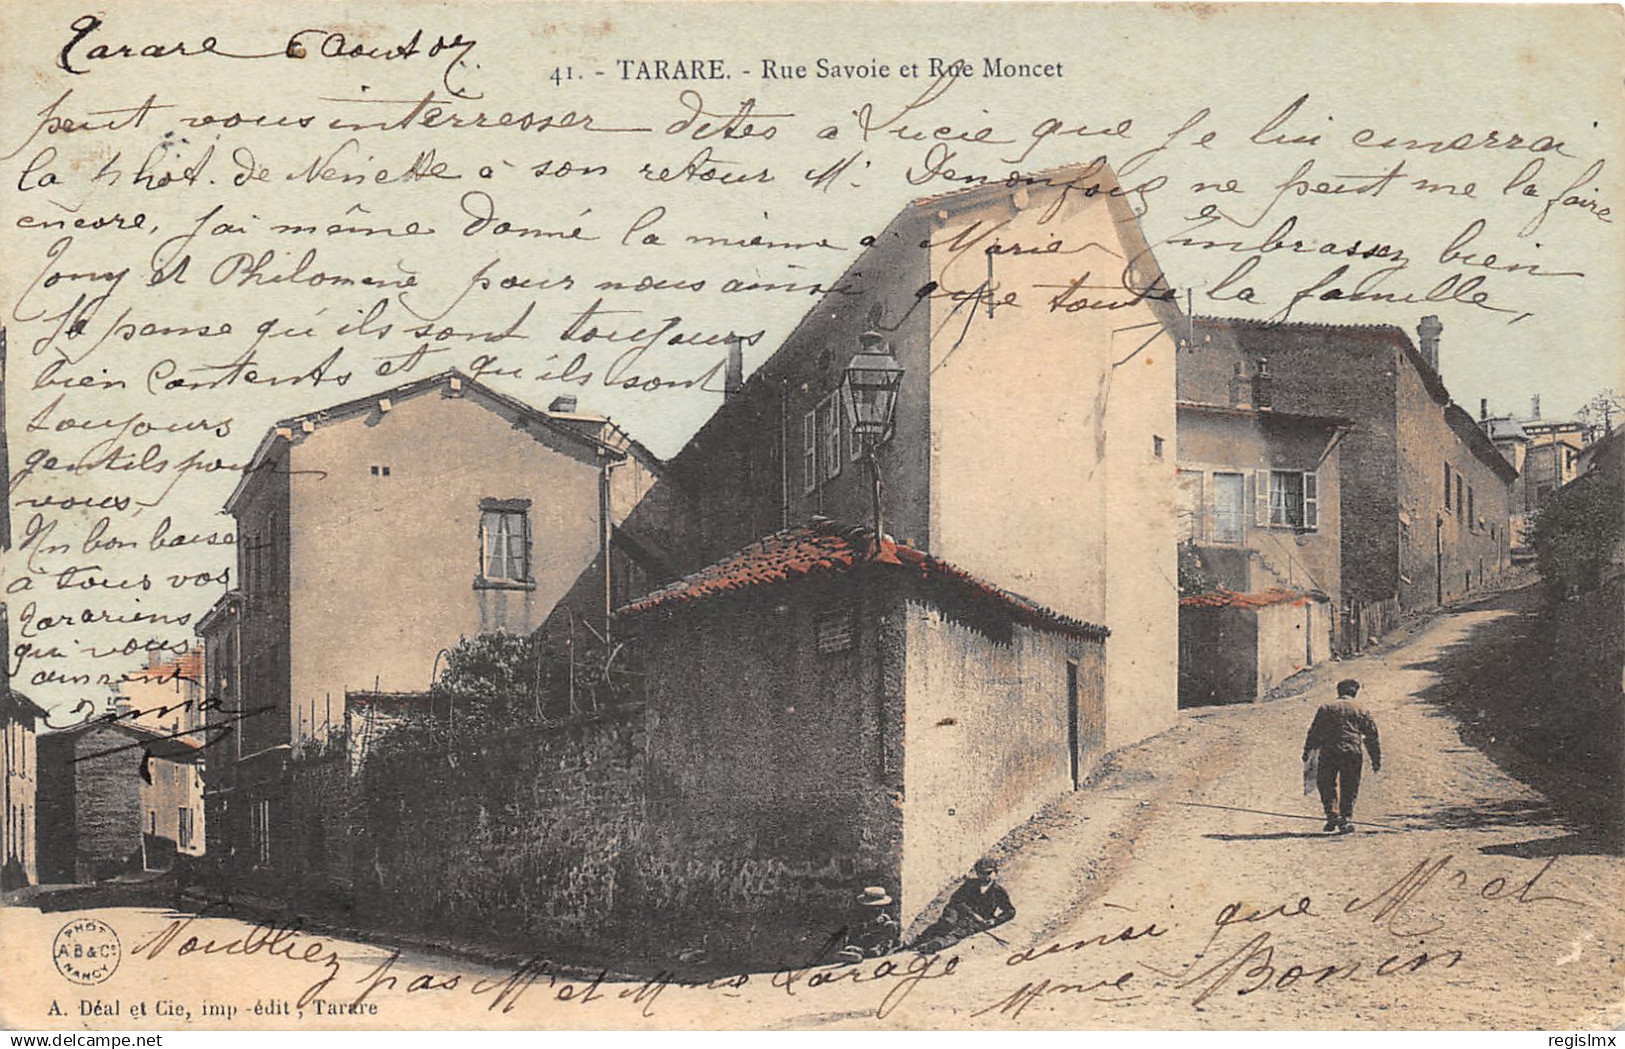 Tarare 6 Aout 07
41. - TARARE. - Rue Savoie et Rue Moncet
peut vous interresser dites à Lucie que je lui enverrai
la phot. de Nenette à son retour M. ne peut me la faire
encore, j'ai même donné la mienne à Marie Embrassez bien
Tony et Philomene pour nous ainsi que toute la famille,
Je pense qu'ils sont toujours
bien contents et qu'ils sont
toujours
gentils pour
vous,
Un bon baiser
à tous vos
Tarariens
qui vous
aiment
Anna
N'oubliez pas Mr et Mme Larage ainsi que Mr et
Mme Bonin
PHOT
AB & Cie
NANCY
A. Déal et Cie, imp-édit, Tarare
© regislmx